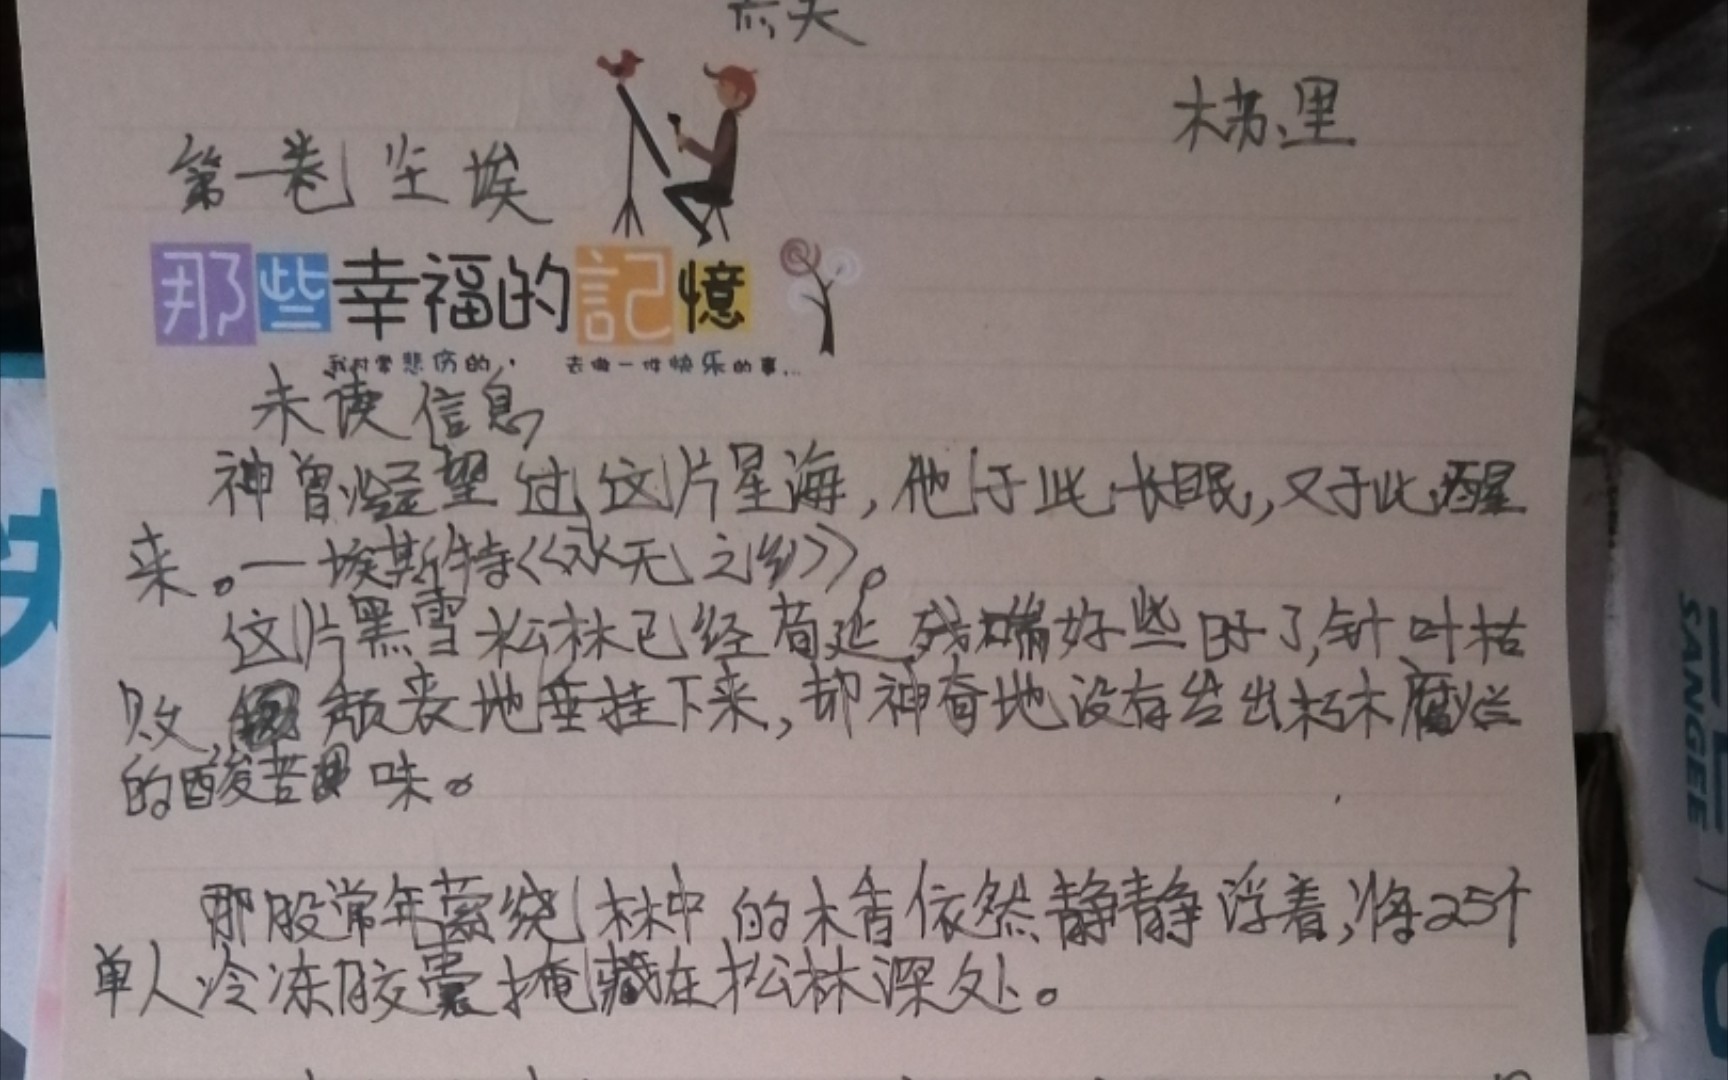 梯里
第一卷 尘埃
那些幸福的記憶
我对常悲伤的,. 去做一件快乐的事...
未读信息
神曾经望过这片星海,他于此长眠,又于此醒
来。—埃斯特《永无之乡》。
这片黑雪松林已经苟延残喘好些日子了,针叶枯
败, 颓衰地垂挂下来,却神奇地没有发出朽木腐烂
的酸苦味。
那股常年萦绕林中的木香依然静静浮着,将25个
单人冷冻胶囊掩藏在松林深处。
SANGEE